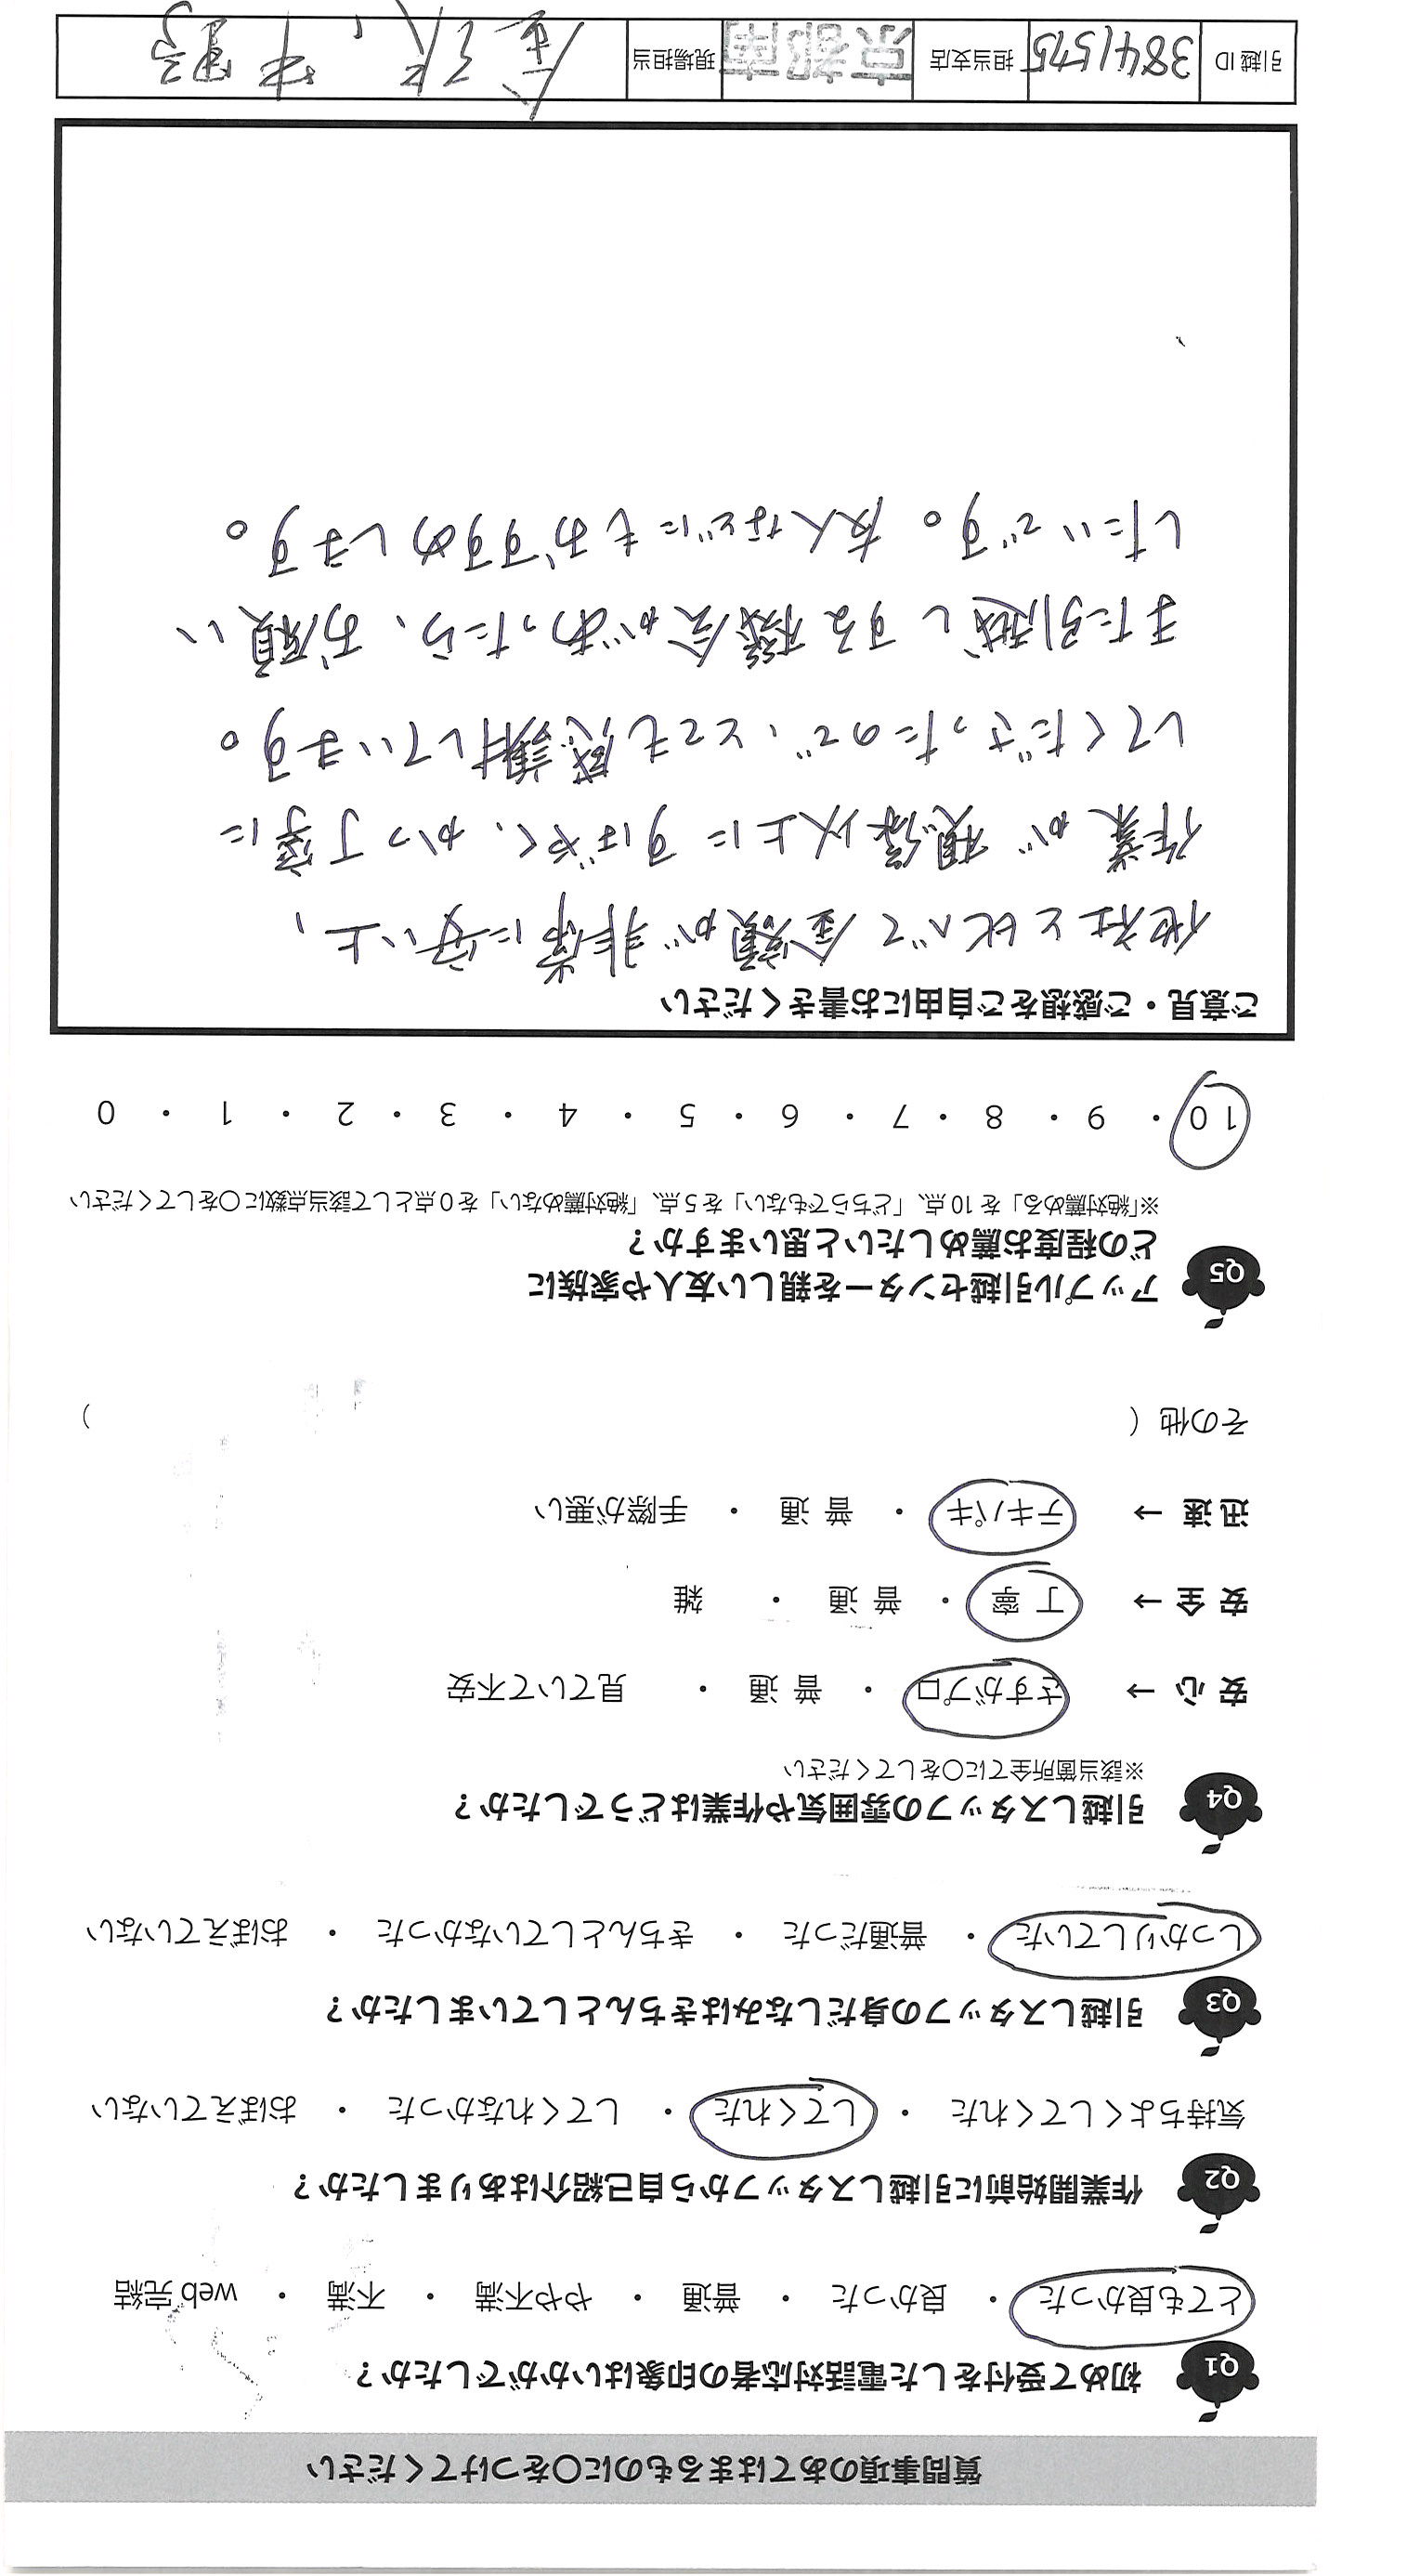 質問事項のあてはまるものに〇をつけてください
Q1 初めて受付をした電話対応者の印象はいかがでしたか？
とても良かった ・ 良かった ・ 普通 ・ やや不満 ・ 不満 ・ web完結
Q2 作業開始前に引越しスタッフから自己紹介はありましたか？
気持ちよくしてくれた ・ してくれた ・ してくれなかった ・ おぼえていない
Q3 引越しスタッフの身だしなみはきちんとしていましたか？
しっかりしていた ・ 普通だった ・ きちんとしていなかった ・ おぼえていない
Q4 引越しスタッフの雰囲気や作業はどうでしたか？
※該当箇所全てに〇をしてください
安心 → さすがプロ ・ 普通 ・ 見ていて不安
安全 → 丁寧 ・ 普通 ・ 雑
迅速 → テキパキ ・ 普通 ・ 手際が悪い
その他（ ）
Q5 アップル引越センターを親しい友人や家族に
どの程度お薦めしたいと思いますか？
※「絶対薦める」を10点、「どちらでもない」を5点、「絶対薦めない」を0点として該当点数に〇をしてください
10 ・ 9 ・ 8 ・ 7 ・ 6 ・ 5 ・ 4 ・ 3 ・ 2 ・ 1 ・ 0
ご意見・ご感想をご自由にお書きください
他社と比べて金額が非常に安い上、
作業が想像以上にすばやく、かつ丁寧に
してくださったので、とても感謝しています。
また引越しする機会があったら、お願い
したいです。友人などにもおすすめします。
引越ID 3841575 担当支店 京都南 現場担当